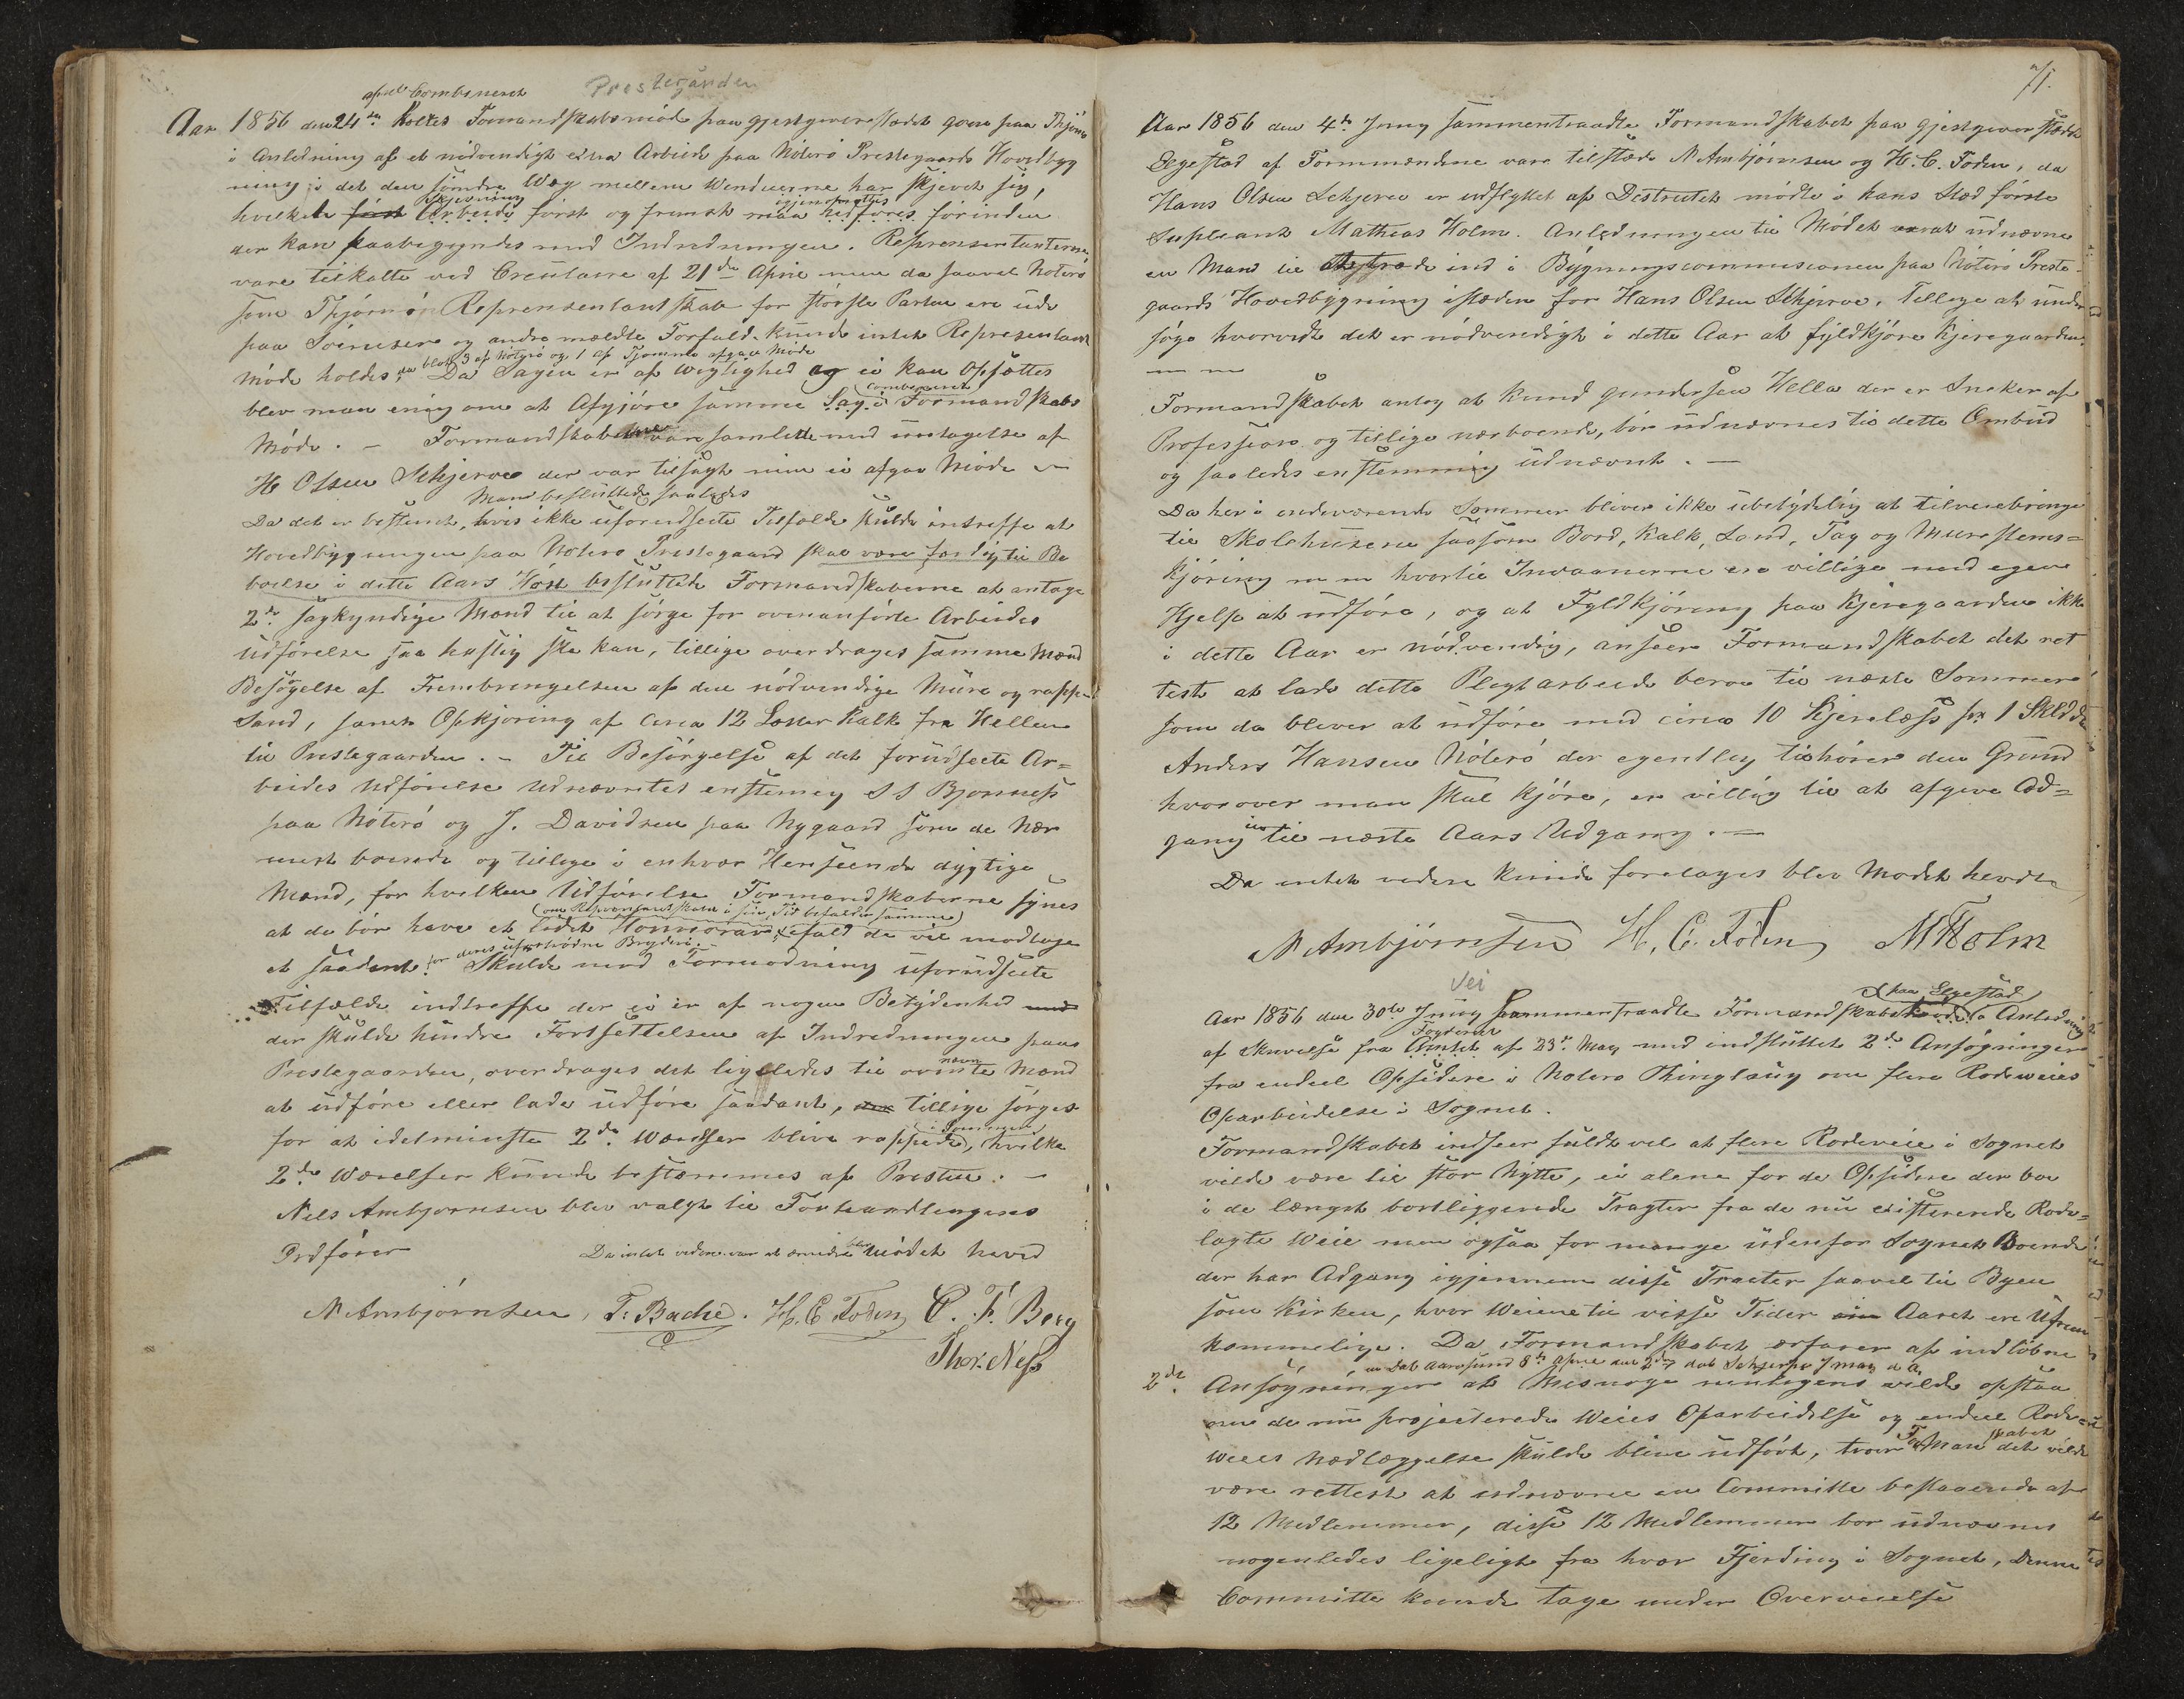 Prestegården
april Combineret
Aar 1856 den 24de holtes Formandskabsmøde paa gjestgiverstædet paa Thjømø
i Anledning af et nødvendigt extra Arbeide paa Nøterø Prestegaards Hovedbyg
ning i det den søndre Wæg mellem Winduerne har skjevet sig,
Skjevning igjenoprettes
hvilket først Arbeide først og fremst maa udføres førinden
der kan paabegyndes med Indredningen. Representanterne
vare tilkalte ved Circulaire af 21de April men da saavel Nøterø
som Thjømø Representantskab for største Parten ere ude
paa Søreisen og andre meldte Forfald kunde intet Representant
da blot 3 af Nøtyrø og 1 af Tjømmø afgav Møde
Møde holdes, Da Sagen er af Wigtighed og ei kan Opsættes
combineret
blev man enig om at Afgjøre samme Sag i Formandskabs
Møde. – Formandskaberne var samlede med undtagelse af
H Olsen Schjerve der var tilsagt men ei afgav Møde –
Man besluttede saaledes
Da det er bestemt, hvis ikke uforudseete Tilfælde skulde intreffe at
Hovedbygningen paa Nøterø Prestegaard skal være færdig til Be
boelse i dette Aars Høst besluttede Formandskaberne at antage
2de sagkyndige Mænd til at sørge for ovenanførte Arbeides
Udførelse saa hastig ske kan, tillige overdrages samme Mænd
Besøgelse af Frembringelsen af den nødvendige Mure og rappe
Sand, samt Opkjøring af circa 12 Læster Kalk fra Hellen
til Prestegaarden. – Til Besørgelse af det forudseete Ar=
beides Udførelse udnævntes enstemig S S Bjønness
paa Nøterø og J. Davidsen paa Nygaard som de Nær
mest boende og tillige i enhver Henseende dygtige
Mænd, for hvilken Udførelse Formandskaberne synes
(om Representantskabet i sin Tid befalder samme)
at de bør have et lidet Honnorar ifald de vil modtage
for deres uforskyldte Bryderi.
et saadant. Skulde mod Formodning uforudseete
Tilfælde indtreffe der ei er af nogen Betydenhed med
der skulde hindre Fortsettelsen af Indredningen paa
Prestegaarden, overdrages det ligeledes til ovennævnte Mænd
at udføre eller lade udføre saadant, tillige sørges
i Sommer
for at idetminste 2de Wærelser blive rappede, hvilke
2de Wærelser kunde bestemmes af Presten. –
Nels Ambjørnsen blev valgt til Forhandlingens
Ordfører Da intet videre var at erindre blev Mødet hævd
N Ambjørnsen, F: Bache. H. C Foden C. F. Berg
Thor. Ness
71.
Aar 1856 den 4de Juny sammentraadte Formandskabet paa gjestgiverstedet
Elgestad af Formændene vare tilstæde N Ambjørnsen og H. C. Foden, da
Hans Olsen Schjerve er udflyttet af Districtet mødte i hans Sted første
Supleant Mathias Holm. Anledningen til Mødet var at udnævne
en Mand til at indtræde ind i Bygningscommissionen paa Nøterø Preste
gaards Hovedbygning isteden for Hans Olsen Schjerve, Tillige at under
søge hvorvidt det er nødvendigt i dette Aar at fyldkjøre Kjerregaarden
m m
Formandskabet antog at Knud Gundersen Hella der er Sneker af
Profession og tillige nærboende, bør udnævnes til dette Ombud
og saaledes enstemmig udnævnt. –
Da her i indeværende Sommer bliver ikke ubetydelig at tilveiebringe
til Skolehusene saasom Bord, Kalk, Sand, Tag og Murestens=
kjøring m m hvortil Indvaanerne ere villige med egen
Hjelp at udføre, og at Fyldkjøring paa Kjeregaarden ikke
i dette Aar er nødvendig, anseer Formandskabet det ret
test at lade dette Pligtarbeide beroe til næste Sommer
som da bliver at udføre med circa 10 Kjerelæss pr 1 Skldd.
Anders Hansen Nøterø der egentlig tilhører den Grund
hvorover man skal kjøre, er villig til at afgive Ad=
gang til næste Aars Udgang. –
Da intet videre kunde foretages blev Mødet hevdt
N Ambjørnsen H. C. Foden M Holm
Vei
paa Elgestad
Aar 1856 den 30te Juny Sammentraadte Formandskabet i Anledning
Fogderiet
af Skrivelse fra Amtet af 23de May med indsluttet 2de Ansøgninger
fra endeel Opsidere i Nøterø Thinglaug om flere Rodeveies
Oparbeidelse i Sognet.
Formandskabet indseer fuldt vel at flere Rodeveie i Sognet
vilde være til stor Nytte, ei alene for de Opsidere der boe
i de længst bortliggende Tragter fra de nu existerende Rode=
lagte Weie men ogsaa for mange udenfor Sognet Boende
der har Adgang igjennem disse Tracter saavel til Byen
som Kirken, hvor Weiene til visse Tider Aaret ere Ufrem
kommelige. Da Formandskabet erfarer af indløbne
en dat Aarøsund 8de April den 2den dat Schjerve 7 May d. A.
2de Ansøgninger at Misnøge vilde opstaa
om de nu projecterede Weies Oparbeidelse og endeel Rode
Formandskabet
weies Nedlæggelse skulde blive udført, troer Man det vilde
være rettest at udnævne en Committe bestaaende af
12 Medlemmer, disse 12 Medlemmer bør udnævnes
nogenledes ligeligt fra hver Fjerding i Sognet, Denne
Committe kunde tage under Overveielse